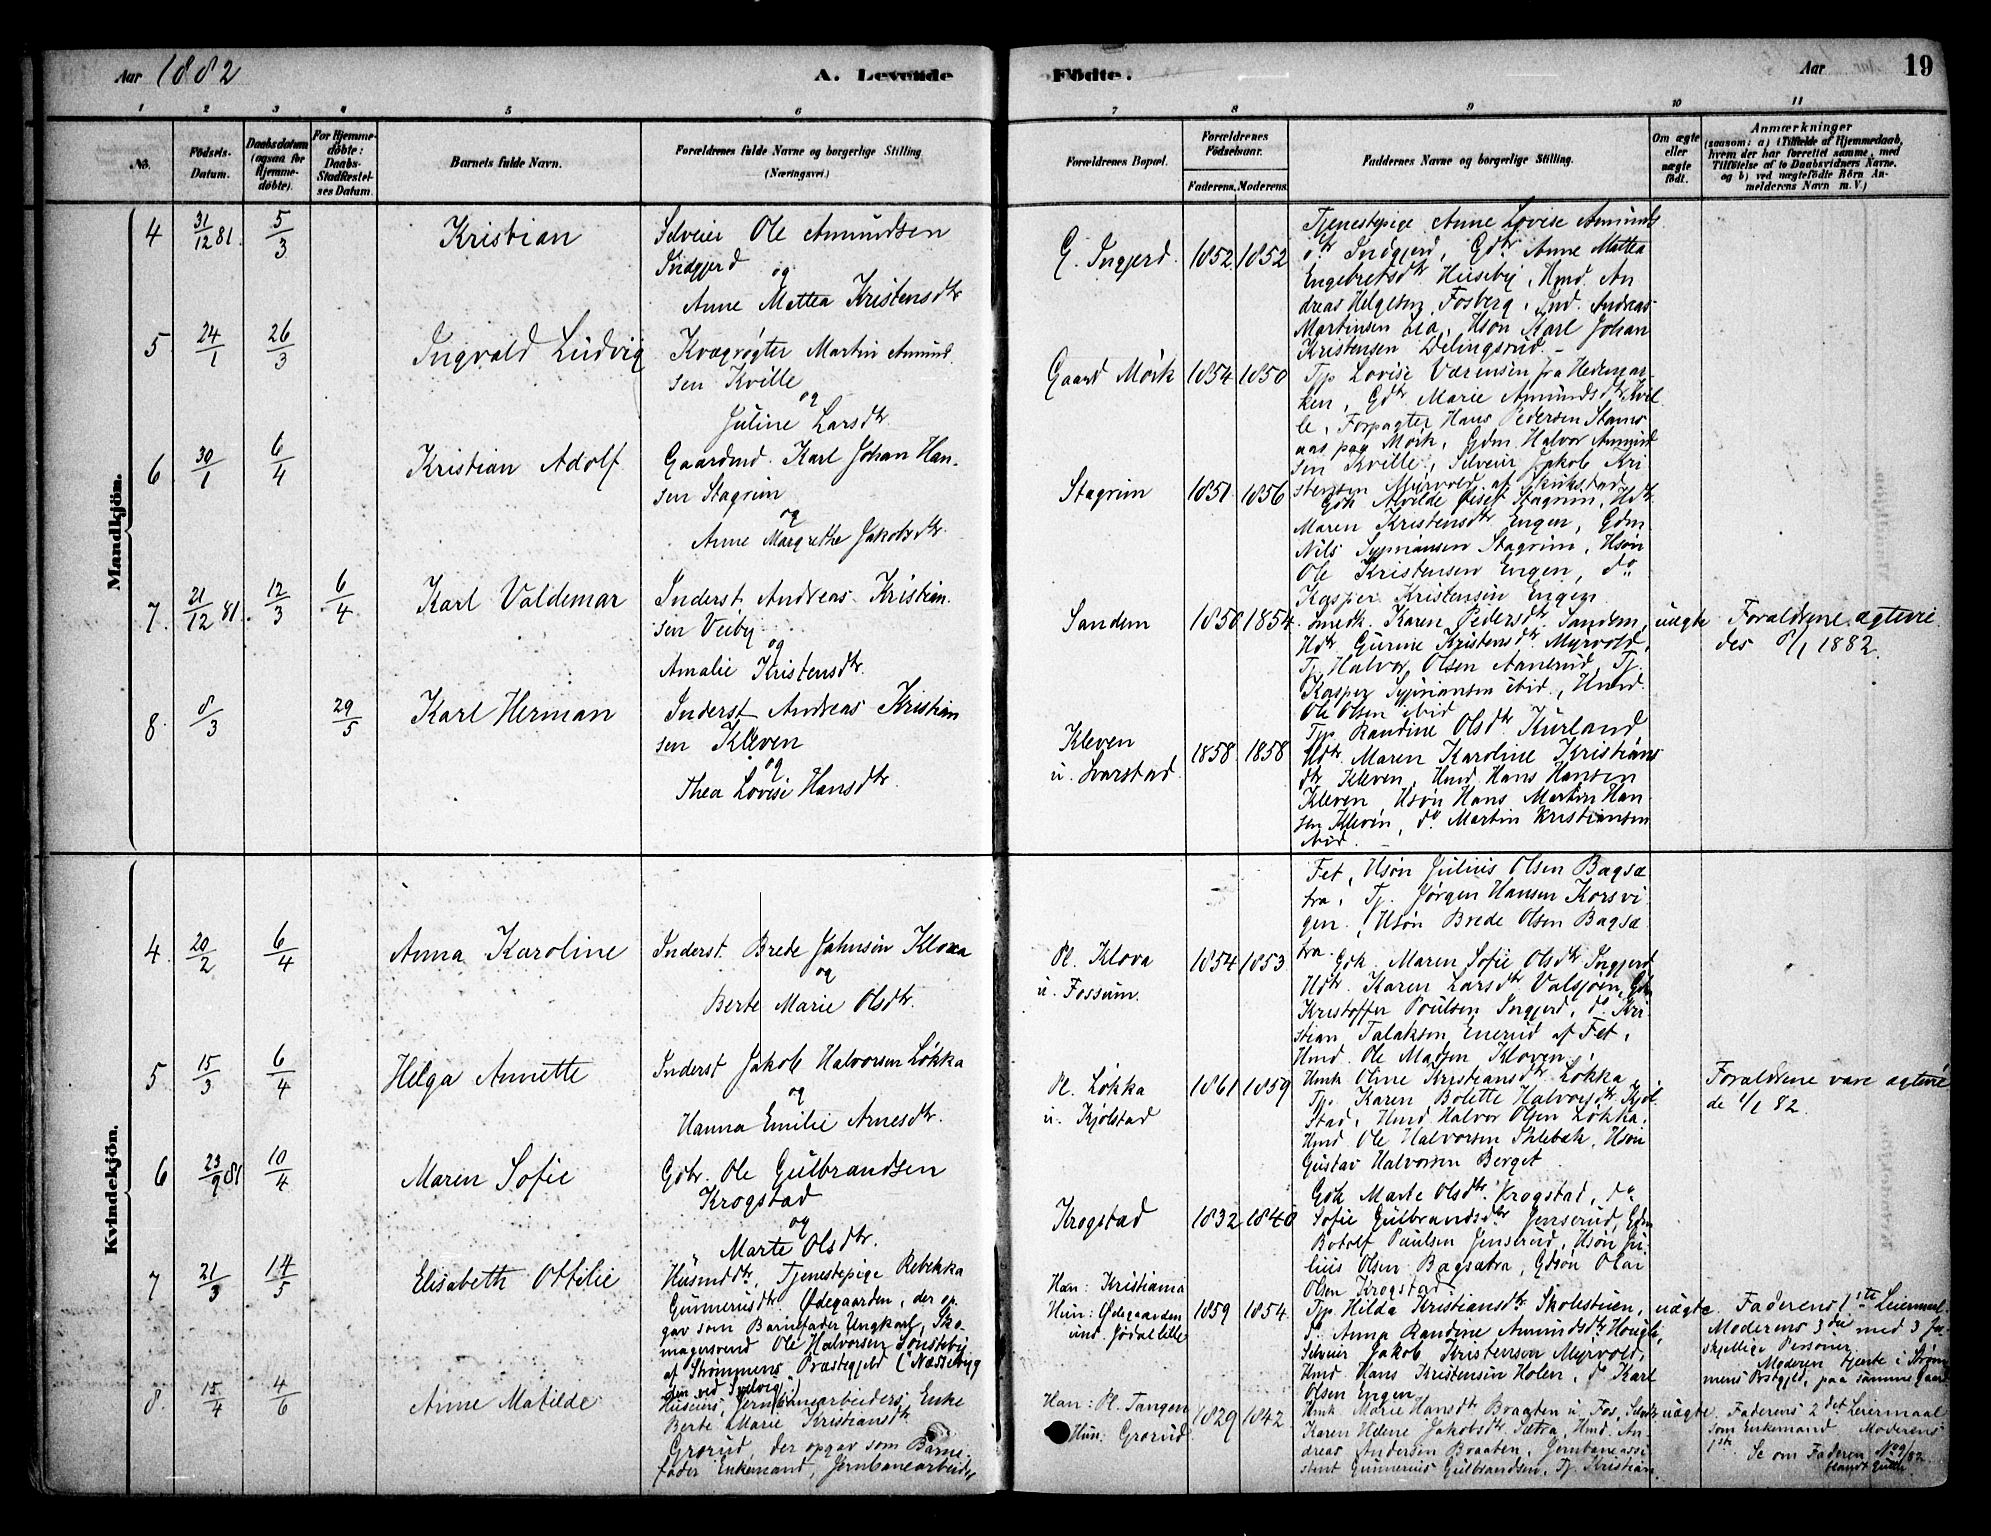 Aar 1882
A. Levende
Födte.
Aar
19
1 2 3 4 5 6 7 8 9 10 11
No.
Födsels-Datum.
Daabsdatum (ogsaa for Hjemme-döbte).
For Hjemme-döbte: Daabs-Stadfæstel-ses Datum.
Barnets fulde Navn.
Forældrenes fulde Navne og borgerlige Stilling (Næringsvei.)
Forældrenes Bopæl.
Forældrenes Födselsaar.
Faderens. Moderens.
Faddernes Navne og borgerlige Stilling.
Om ægte eller uægte födt.
Anmærkninger
(saasom: a) i Tilfælde af Hjemmedaab,
hvem der har forrettet samme, med
Tilföielse af to Daabsvidners Navne.
og b) ved uægtefödte Börn An-
melderens Navn m. V.)
Mandkjön.
4
31/12 81.
5/3
Kristian
Selveier Ole Amundsen
Indgjerd og
Anne Mattea Kristensdtr
G. Ingjerd.
1852 1852
Tjenestepige Anne Lovise Amunds
dtr Indgjerd, Gdtr Anne Mattea
Engebretsdtr Huseby, Hmd. An
dreas Helgesen Fosberg, Ind. Andreas
Martinsen Lea, Hsøn Karl Johan
Kristensen Delingsrud.
5
24/1
26/3
Ingvald Ludvig
Kvægrøgter Martin Amund
sen Kville
og
Juline Larsdtr
Gaard Mørk
1854 1850
Tjp Lovise Værensen fra Hedemar
ken, Gdtr Marie Amundsdtr Kvil
le, Forpagter Hans Pedersen Stams
aas paa Mørk, Gdm. Halvor Amund
sen Kville, Selveier Jakob Kri
stensen Myrvold af Skukstad
6
30/1
6/4
Kristian Adolf
Gaardmd. Karl Johan Han
sen Stagrim
og
Anne Margrethe Jakobsdtr
Stagrim
1851 1856
Gdk Alvilde Stagrim, Hdtr
Maren Kristensdtr Engen, Gdm
Nils Sypriansen Stagrim, Hsøn
Ole Kristensen Engen, do
Kasper Kristensen Engen
7.
21/12 81.
12/3
6/4
Karl Valdemar
Inderst Andreas Kristian
sen Veiby
og
Amalie Kristensdtr.
Sandem
1850 1854
Smedk. Karen Pedersdtr Sandem,
Hdtr Gurine Kristensdtr Myrvold,
Tj. Halvor Olsen Aanerud, Tj.
Kasper Sypriansen ibid., Hmd.
Ole Olsen ibid
uægte
Forældrene ægtevie
des 8/1 1882.
8.
8/3
29/5
Karl Herman
Inderst Andreas Kristian
sen Kleven
og
Thea Lovise Hansdtr.
Kleven
u. Svarstad.
1858 1858
Tjp. Randine Olsdtr Kurland
Hdtr. Maren Karoline Kristians
dtr Kleven, Hmd. Hans Hansen
Kleven, Hsøn Hans Martin Han
sen Kleven, do Martin Kristiansen
ibid.
Kvindekjön.
Fet, Hsøn Julius Olsen Bagsæ
tra, Tj. Jørgen Hansen Korsvi
gen, Hsøn Brede Olsen Bagsæ
tra.
4.
20/2
6/4
Anna Karoline
Inderst. Brede Johnsen Klova
og
Berte Marie Olsdtr.
Pl. Klova
u. Fossum.
1854 1853
Gdk. Maren Sofie Olsdtr Ingjerd
Hdtr. Karen Larsdtr Valsjøen, Gdm
Kristoffer Poulsen Ingjerd, do Kri
stian Talaksen Enerud af Fet,
Hmd. Ole Madsen Kloven.
5
15/3
6/4
Helga Annette
Inderst Jakob Halvorsen Løkka
og
Hanna Emilie Arnesdtr.
Pl. Løkka
u. Kjølstad
1861 1859
Hmk Oline Kristiansdtr Løkka
Tjp. Karen Bolette Halvorsdtr Kjøl
stad, Hmd Halvor Olsen Løkka,
Hmd Ole Halvorsen Shlebæk, Hsøn
Gustav Halvorsen Berget
Forældrene vare ægtevie
de 1/1 82.
6
23/9 81
10/4
Maren Sofie
Gdbr. Ole Gulbrandsen
Krogstad
og
Marte Olsdtr.
Krogstad
1832 1840
Gdk Marte Olsdtr Krogstad, do
Sofie Gulbrandsdtr Jenserud, Gdm
Botolf Paulsen Jenserud, Hsøn Ju
lius Olsen Bagsætra, Gdsøn Olai
Olsen Krogstad.
7
21/3
14/5
Elisabeth Ottilie
Husmdtr., Tjenestepige Rebekka
Gunnerusdtr Ødegaarden, der op
gav som Barnefader Ungkarl, Sko
magersvend Ole Halvorsen Sønsteby
af Strømmens Præstegjeld (Næsse
ved
Han: Kristiania
Hun: Ødegaarden
und. Jødal lille
1859 1854
Tjp. Hilda Kristiansdtr Skolestuen,
do Anna Randine Amundsdtr Haugli,
Selveier Jakob Kristensen Myrvold,
Hmd Hans Kristensen Holen, do Karl
Olsen Engen
uægte.
Faderens 1ste Leiermaal
Moderens 3die med 3 for
skjellige Personer.
Moderen tjente i Strøm
mens Prstgjld, paa samme Gaard
8.
15/4
4/6
Anne Matilde
Huseiers, Jernbanearbeiders Enke
Berte Marie Kristiansdtr
Grorud, der opgav som Barne
fader Enkemand, Jernbanearbeider
Han: Pl. Tangen
Hun: Grorud
1829 1842
Hmk Marie Hansdtr Braaten u. Fos,
Karen Helene Jakobsdtr Sætra, Hmd. An
dreas Andersen Braaten, Jernbaneassi
stent Gunnerius Gulbrandsen, Tj. Kristian
uægte.
Faderens 2det Leiermaal
som Enkemand Moderens
1ste
Se om Faderen No 9/82.
blandt Gutter